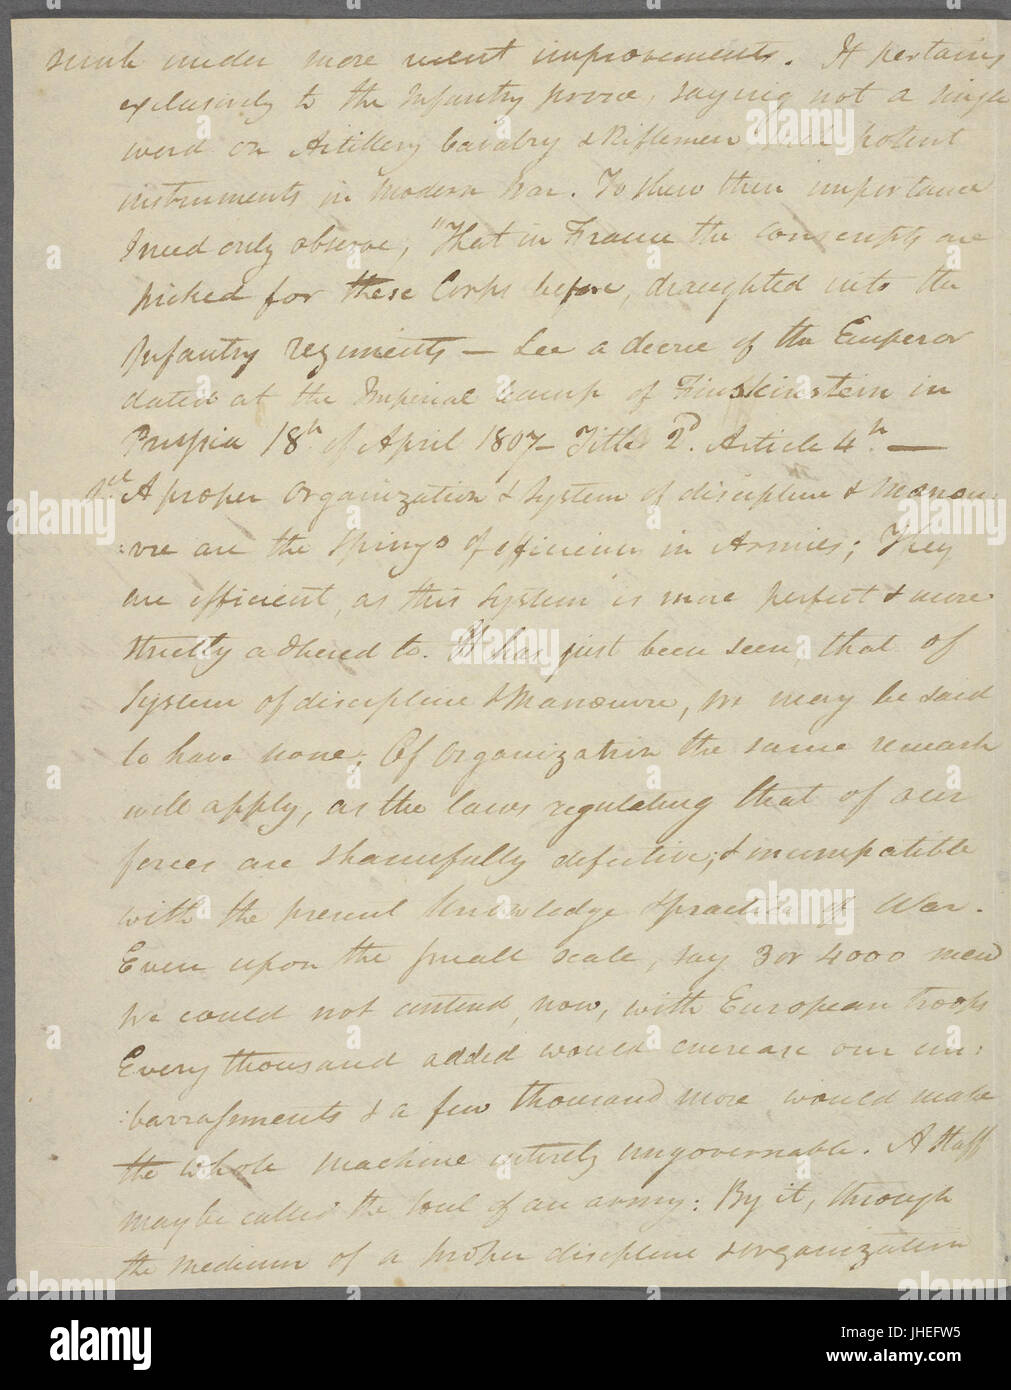 sunk under more recent improvements. It pertains
exclusively to the Infantry province, saying not a single
word on Artillery Cavalry & Riflemen potent
instruments in modern War. To shew their importance
I need only observe, "That in France the conscripts are
picked for these Corps before, draughted into the
Infantry regiments — See a decree of the Emperor
dated at the Imperial Camp of Finskinstein in
Prussia 18th of April 1807 – Title 2d. Article 4th. —
2d. A proper Organization & System of discipline & Manou
:vre are the springs of efficiency in Armies; They
are efficient, as this System is more perfect & more
strictly adhered to. It has just been seen, that of
System of discipline & Manœuvre, we may be said
to have none; Of Organization the same remark
will apply, as the laws regulating that of our
forces are shamefully defective; & incompatible
with the present knowledge & practice of War.
Even upon the small scale, say 3 or 4000 men
We could not contend, now, with European troops
Every thousand added would encrease our em:
:barrassments & a few thousand more would make
the whole machine entirely ungovernable. A Staff
may be called the soul of an army: By it, through
the medium of a proper discipline & organization
alamy
alamy
Image ID: JHEFW5
www.alamy.com